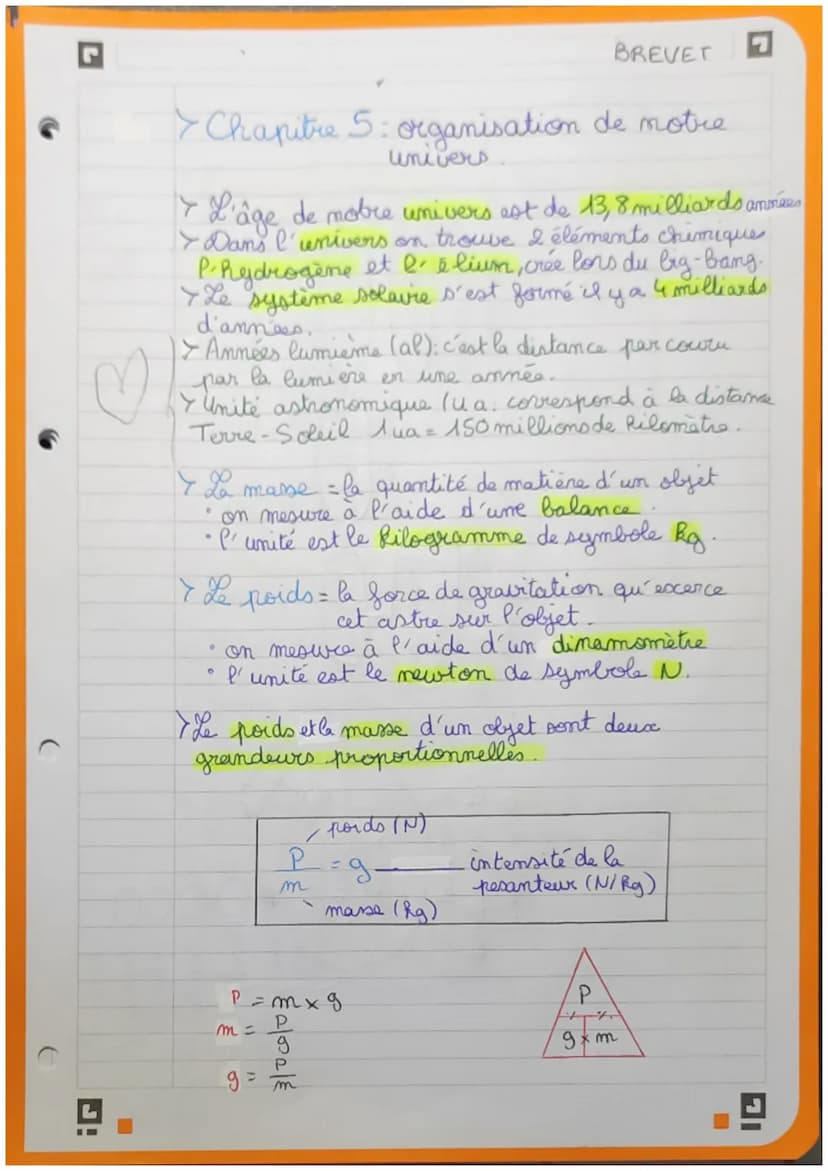 BREVET
> Chapitre 5 : organisation de notre
univers.
> L'âge de notre univers est de 13,8 milliards années
> Dans l'univers on trouve 2 éléments chimiques
l'hydrogène et l'élium, crée lors du big-bang.
> Le système solaire s'est formé il y a 4 milliards
d'années.
> Années lumième (al): c'est la distance parcouru
par la lumière en une année.
> Unité astronomique (u a. correspond à la distance
Terre-Soleil 1ua = 150 millions de kilomètre.
> La masse = la quantité de matière d'un objet
• on mesure à l'aide d'une balance.
• l'unité est le kilogramme de symbole kg.
> Le poids = la force de gravitation qu'excerce
cet astre sur l'objet.
• on mesure à l'aide d'un dinamomètre
• l'unité est le newton de symbole N.
> Le poids et la masse d'un objet sont deux
grandeurs proportionnelles.
poids (N)
P/m = g intensité de la
pesanteur (N/kg)
masse (kg)
P = m x g
m = P/g
g = P/m
P
g x m